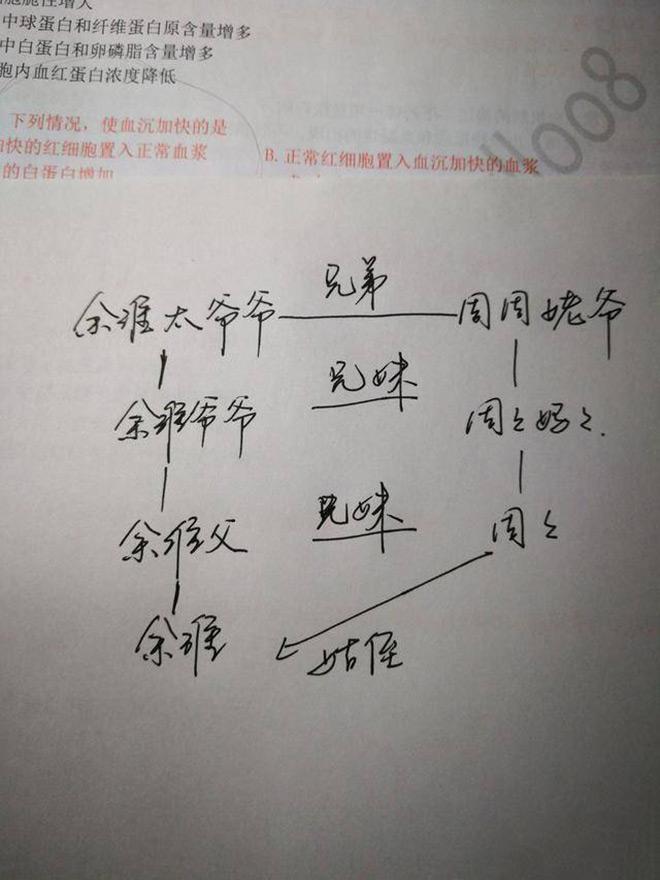 细胞脆性增大
中球蛋白和纤维蛋白原含量增多
中白蛋白和卵磷脂含量增多
胞内血红蛋白浓度降低
下列情况，使血沉加快的是
加快的红细胞置入正常血浆 B. 正常红细胞置入血沉加快的血浆
的白蛋白增加
兄弟
余淮太爷爷 周周姥爷
兄妹
余淮爷爷 周々妈々.
兄妹
余淮父 周々
余淮 姑侄